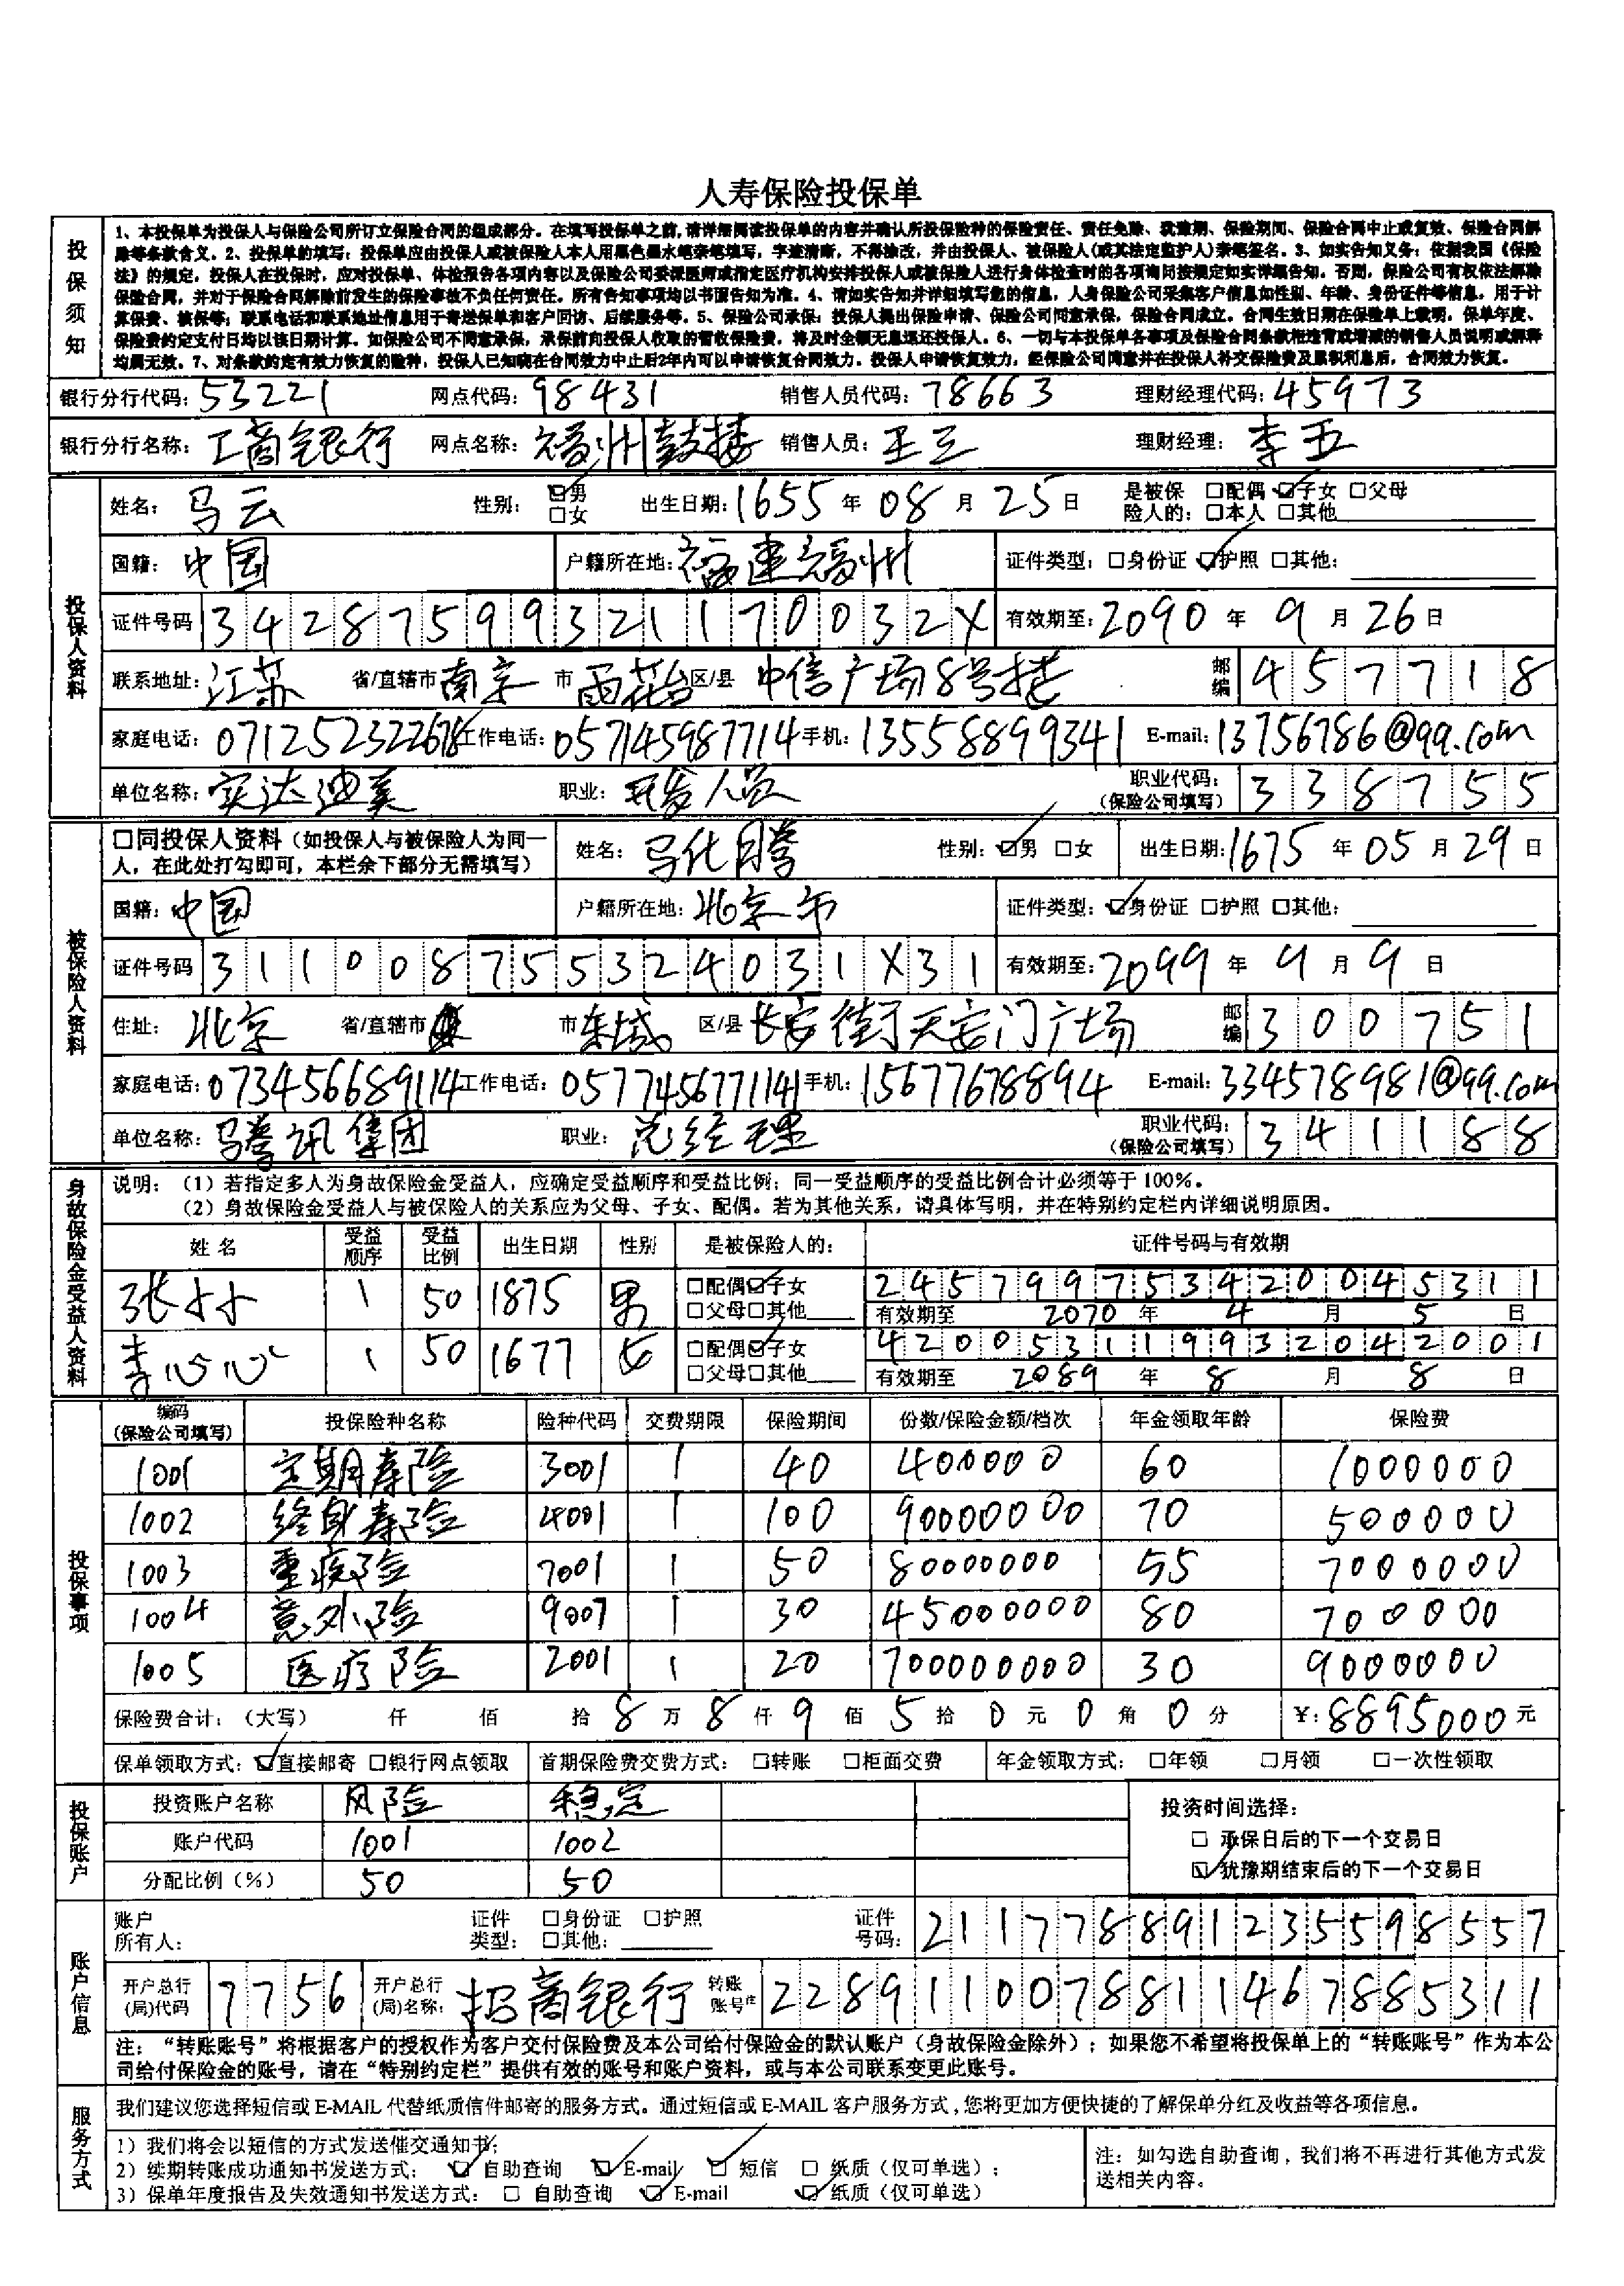 人寿保险投保单
投保须知
1、本投保单为投保人与保险公司所订立保险合同的组成部分。在填写投保单之前,请详细阅读投保单的内容并确认所投保险种的保险责任、责任免除、犹豫期、保险期间、保险合同中止或复效、保险合同解
除等条款含义。2、投保单的填写:投保单应由投保人或被保险人本人用黑色墨水笔亲笔填写,字迹清晰,不得涂改,并由投保人、被保险人(或其法定监护人)亲笔签名。3、如实告知义务:依据我国《保险
法》的规定,投保人在投保时,应对投保单、体检报告各项内容以及保险公司委派医师或指定医疗机构安排投保人或被保险人进行身体检查时的各项询问按规定如实详细告知。否则,保险公司有权依法解除
保险合同,并对于保险合同解除前发生的保险事故不负任何责任。所有告知事项均以书面告知为准。4、请如实告知并详细填写您的信息,人身保险公司采集客户信息如性别、年龄、身份证件等信息,用于计
算保费、核保等;联系电话和联系地址信息用于寄送保单和客户回访、后续服务等。5、保险公司承保:投保人提出保险申请、保险公司同意承保,保险合同成立。合同生效日期在保险单上载明。保单年度、
保险费约定支付日均以该日期计算。如保险公司不同意承保,承保前向投保人收取的暂收保险费,将及时全额无息退还投保人。6、一切与本投保单各事项及保险合同条款相违背或增减的销售人员说明或解释
均属无效。7、对条款约定有效力恢复的险种,投保人已知晓在合同效力中止后2年内可以申请恢复合同效力。投保人申请恢复效力,经保险公司同意并在投保人补交保险费及累积利息后,合同效力恢复。
银行分行代码:53221 网点代码:98431 销售人员代码:78663 理财经理代码:45973
银行分行名称:工商银行 网点名称:福州鼓楼 销售人员:王三 理财经理:李五
投保人资料
姓名:马云 性别:☑男 □女 出生日期:1655年08月25日 是被保险人的:□配偶 ☑子女 □父母 □本人 □其他
国籍:中国 户籍所在地:福建福州 证件类型:□身份证 ☑护照 □其他:
证件号码 34287599321170032X 有效期至:2090年9月26日
联系地址:江苏 省/直辖市 南京 市 雨花台 区/县 中信广场8号楼 邮编 457718
家庭电话:071252322678 工作电话:057145987714 手机:13558899341 E-mail:13756786@qq.com
单位名称:实达迪美 职业:开发人员 职业代码:(保险公司填写) 338755
被保险人资料
□同投保人资料(如投保人与被保险人为同一人,在此处打勾即可,本栏余下部分无需填写) 姓名:马化腾 性别:☑男 □女 出生日期:1675年05月29日
国籍:中国 户籍所在地:北京市 证件类型:☑身份证 □护照 □其他:
证件号码 311008755324031X31 有效期至:2099年9月9日
住址:北京 省/直辖市 市 东城 区/县 长安街天安门广场 邮编 300751
家庭电话:073456689114 工作电话:0577456771141 手机:15677678894 E-mail:334578981@qq.com
单位名称:马腾讯集团 职业:总经理 职业代码:(保险公司填写) 341188
身故保险金受益人资料
说明:(1)若指定多人为身故保险金受益人,应确定受益顺序和受益比例;同一受益顺序的受益比例合计必须等于100%。
(2)身故保险金受益人与被保险人的关系应为父母、子女、配偶。若为其他关系,请具体写明,并在特别约定栏内详细说明原因。
姓名 受益顺序 受益比例 出生日期 性别 是被保险人的: 证件号码与有效期
张大大 1 50 1875 男 □配偶 ☑子女 □父母 □其他 245799753420045311
有效期至 2070年4月5日
李心心 1 50 1677 女 □配偶 ☑子女 □父母 □其他 420053119932042001
有效期至 2089年8月8日
投保事项
编码(保险公司填写) 投保险种名称 险种代码 交费期限 保险期间 份数/保险金额/档次 年金领取年龄 保险费
1001 定期寿险 3001 1 40 400000 60 1000000
1002 终身寿险 4001 1 100 90000000 70 500000
1003 重疾险 7001 1 50 80000000 55 7000000
1004 意外险 9007 1 30 45000000 80 700000
1005 医疗险 2001 1 20 700000000 30 9000000
保险费合计:(大写) 仟 佰 拾 8万8仟9佰5拾0元0角0分 ¥:8895000元
保单领取方式:☑直接邮寄 □银行网点领取 首期保险费交费方式:□转账 □柜面交费 年金领取方式:□年领 □月领 □一次性领取
投保账户
投资账户名称 风险 稳定 投资时间选择:
账户代码 1001 1002 □ 承保日后的下一个交易日
分配比例(%) 50 50 ☑ 犹豫期结束后的下一个交易日
账户信息
账户所有人: 证件类型:□身份证 □护照 □其他: 证件号码:211778891235598557
开户总行(局)代码 7756 开户总行(局)名称:招商银行 转账账号注 2289110078811467885311
注:“转账账号”将根据客户的授权作为客户交付保险费及本公司给付保险金的默认账户(身故保险金除外);如果您不希望将投保单上的“转账账号”作为本公
司给付保险金的账号,请在“特别约定栏”提供有效的账号和账户资料,或与本公司联系变更此账号。
服务方式
我们建议您选择短信或E-MAIL代替纸质信件邮寄的服务方式。通过短信或E-MAIL客户服务方式,您将更加方便快捷的了解保单分红及收益等各项信息。
1)我们将会以短信的方式发送催交通知书;
2)续期转账成功通知书发送方式:☑ 自助查询 ☑ E-mail ☑ 短信 □ 纸质(仅可单选);
3)保单年度报告及失效通知书发送方式:□ 自助查询 ☑ E-mail ☑ 纸质(仅可单选)
注:如勾选自助查询,我们将不再进行其他方式发送相关内容。